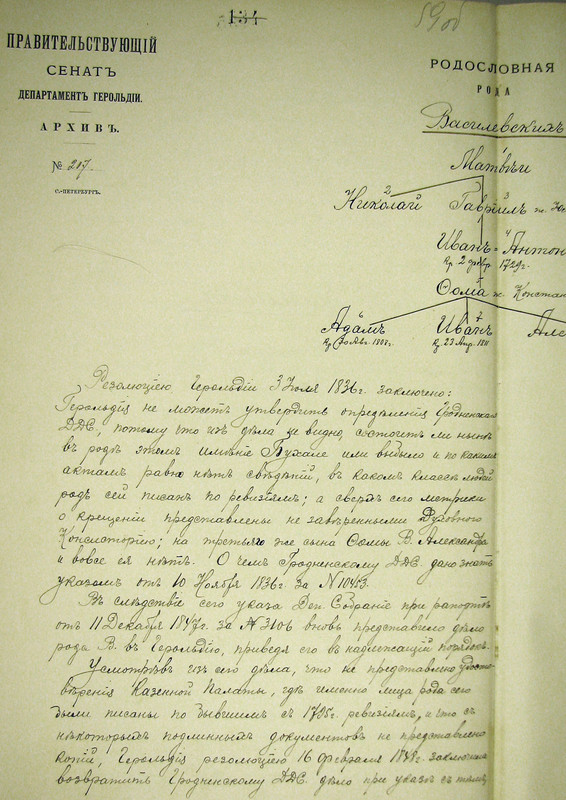 134
59 об
ПРАВИТЕЛЬСТВУЮЩІЙ
СЕНАТЪ
ДЕПАРТАМЕНТЪ ГЕРОЛЬДІИ.
АРХИВЪ.
№ 217
С.-ПЕТЕРБУРГЪ.
РОДОСЛОВНАЯ
РОДА
Василевскихъ
Матвѣй
2 3
Николай Гавріилъ ж.
4
Иванъ - Антон
Кр. 2 февр. 1729г.
5
Ѳома ж. Констан
6 7
Адамъ Иванъ Але
Кр. 30 Авг. 1807г. Кр. 23 Апр. 1811
Резолюціею Герольдіи 3 Іюля 1836г. заключено:
Герольдія не можетъ утвердить опредѣленія Гродненскаго
ДДС., потому что изъ дѣла не видно, состоитъ ли нынѣ
въ родѣ этомъ имѣніе Пухале или выбыло и по какимъ
актамъ равно нѣтъ свѣдѣній, въ какомъ классѣ людей
родъ сей писанъ по ревизіямъ; а сверхъ сего метрики
о крещеніи представлены не завѣренными Духовною
Консисторіею; на третьяго же сына Ѳомы В. Александра
и вовсе ея нѣтъ. О чемъ Гродненскому ДДС. дано знать
указомъ отъ 10 Ноября 1836г. за № 10453.
Въ слѣдствіе сего указа Деп. Собраніе при рапортѣ
отъ 11 Декабря 1847г. за № 3106 вновь представило дѣло
рода В. въ Герольдію, приведя его въ надлежащій порядокъ.
Усмотрѣвъ изъ сего дѣла, что не представлено удосто-
вѣренія Казенной Палаты, гдѣ именно лица рода сего
были писаны по бывшимъ съ 1795г. ревизіямъ, и что съ
нѣкоторыхъ подлинныхъ документовъ не представлено
копій, Герольдія резолюціею 16 февраля 1848г. заключила
возвратить Гродненскому ДДС. дѣло при указѣ съ тѣмъ,